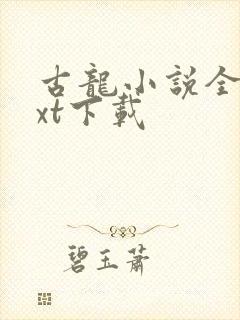 古龍小説全
xt下載
碧玉蕭